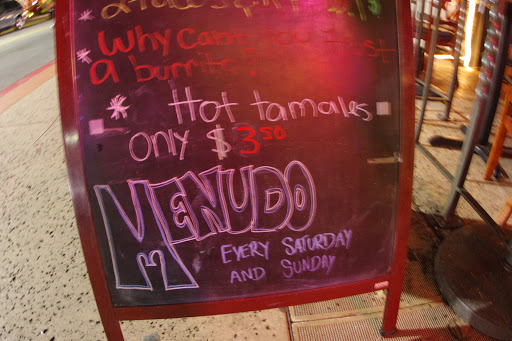 Why can't
a burrito
* Hot tamales
only $3.50
MENUDO
EVERY SATURDAY
AND SUNDAY